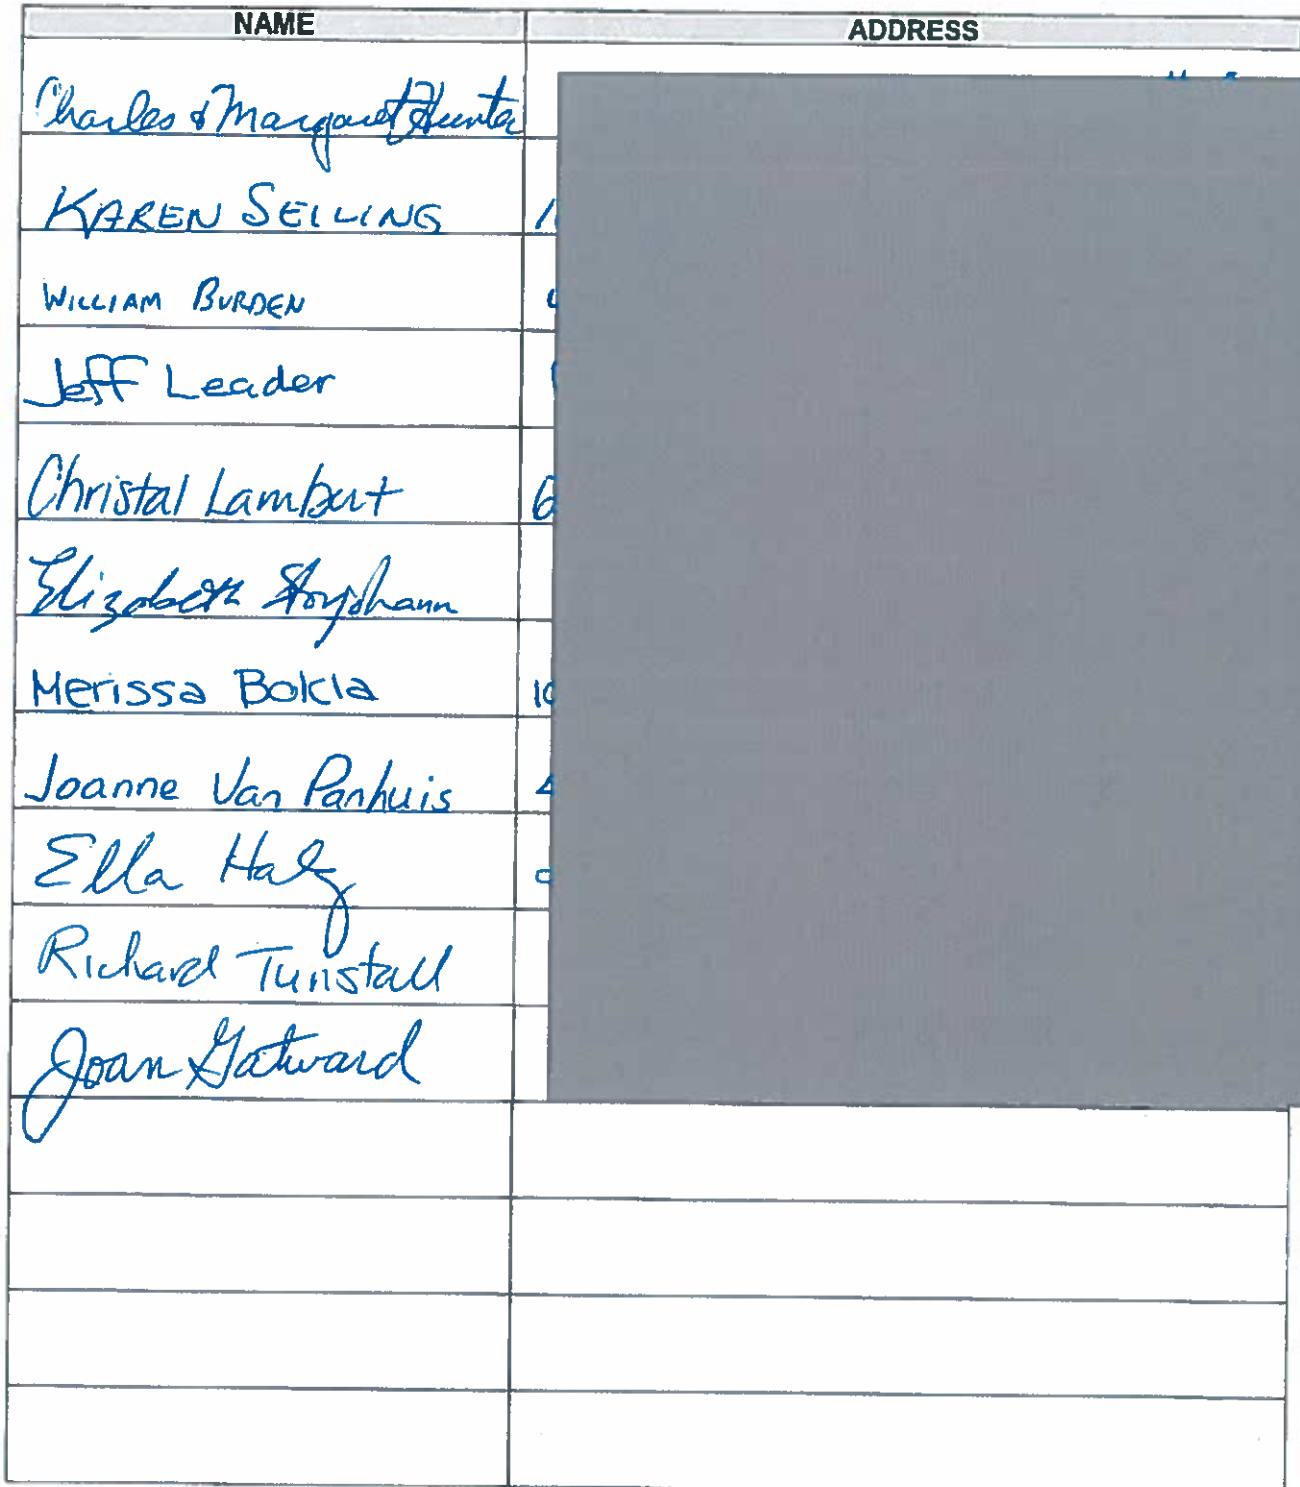 NAME ADDRESS
Charles & Margaret Hunter
KAREN SEILING
WILLIAM BURDEN
Jeff Leader
Christal Lambert
Elizabeth
Merissa Bokla
Joanne Van Panhuis
Ella
Richard Tunstall
Joan Gatward